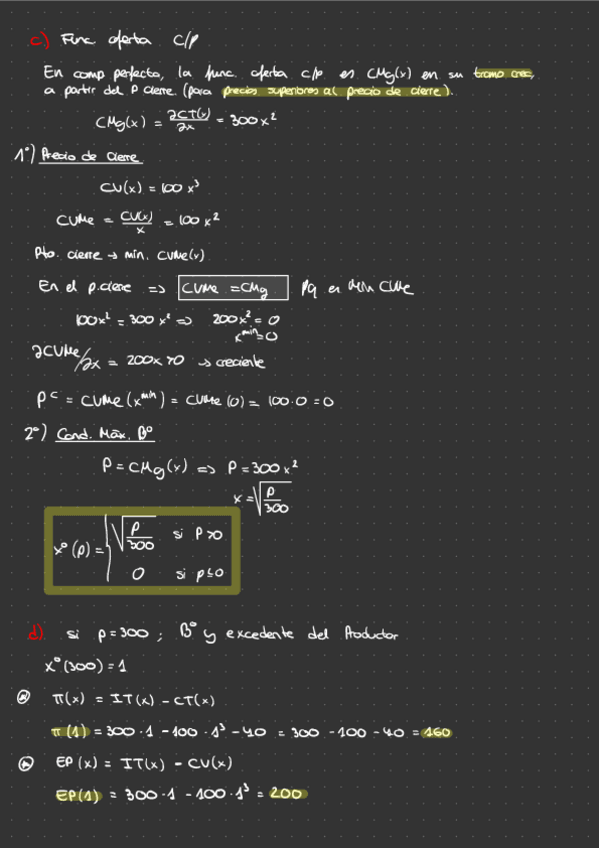 c.) Func oferta C/P
En comp perfecta, la func. oferta c/p es CMg(x) en su tramo crec,
a partir del P cierre. (para precios superiores al precio de cierre).
CMg(x) = ∂CT(x)/∂x = 300x²
1º) Precio de cierre
CV(x) = 100x³
CVMe = CV(x)/x = 100x²
Pto. cierre → min. CVMe(x)
En el p.cierre => CVMe = CMg Pq es Min CVMe
100x² = 300x² => 200x² = 0
x^min = 0
∂CVMe/∂x = 200x > 0 → creciente
P^c = CVMe(x^min) = CVMe(0) = 100·0 = 0
2º) Cond. Máx. Bº
P = CMg(x) => P = 300x²
x = √(P/300)
xº(p) = { √(P/300) si P>0
0 si p≤0
d). si p=300; Bº y excedente del Productor
xº(300) = 1
π(x) = IT(x) - CT(x)
π(1) = 300·1 - 100·1³ - 40 = 300 - 100 - 40 = 160
EP(x) = IT(x) - CV(x)
EP(1) = 300·1 - 100·1³ = 200